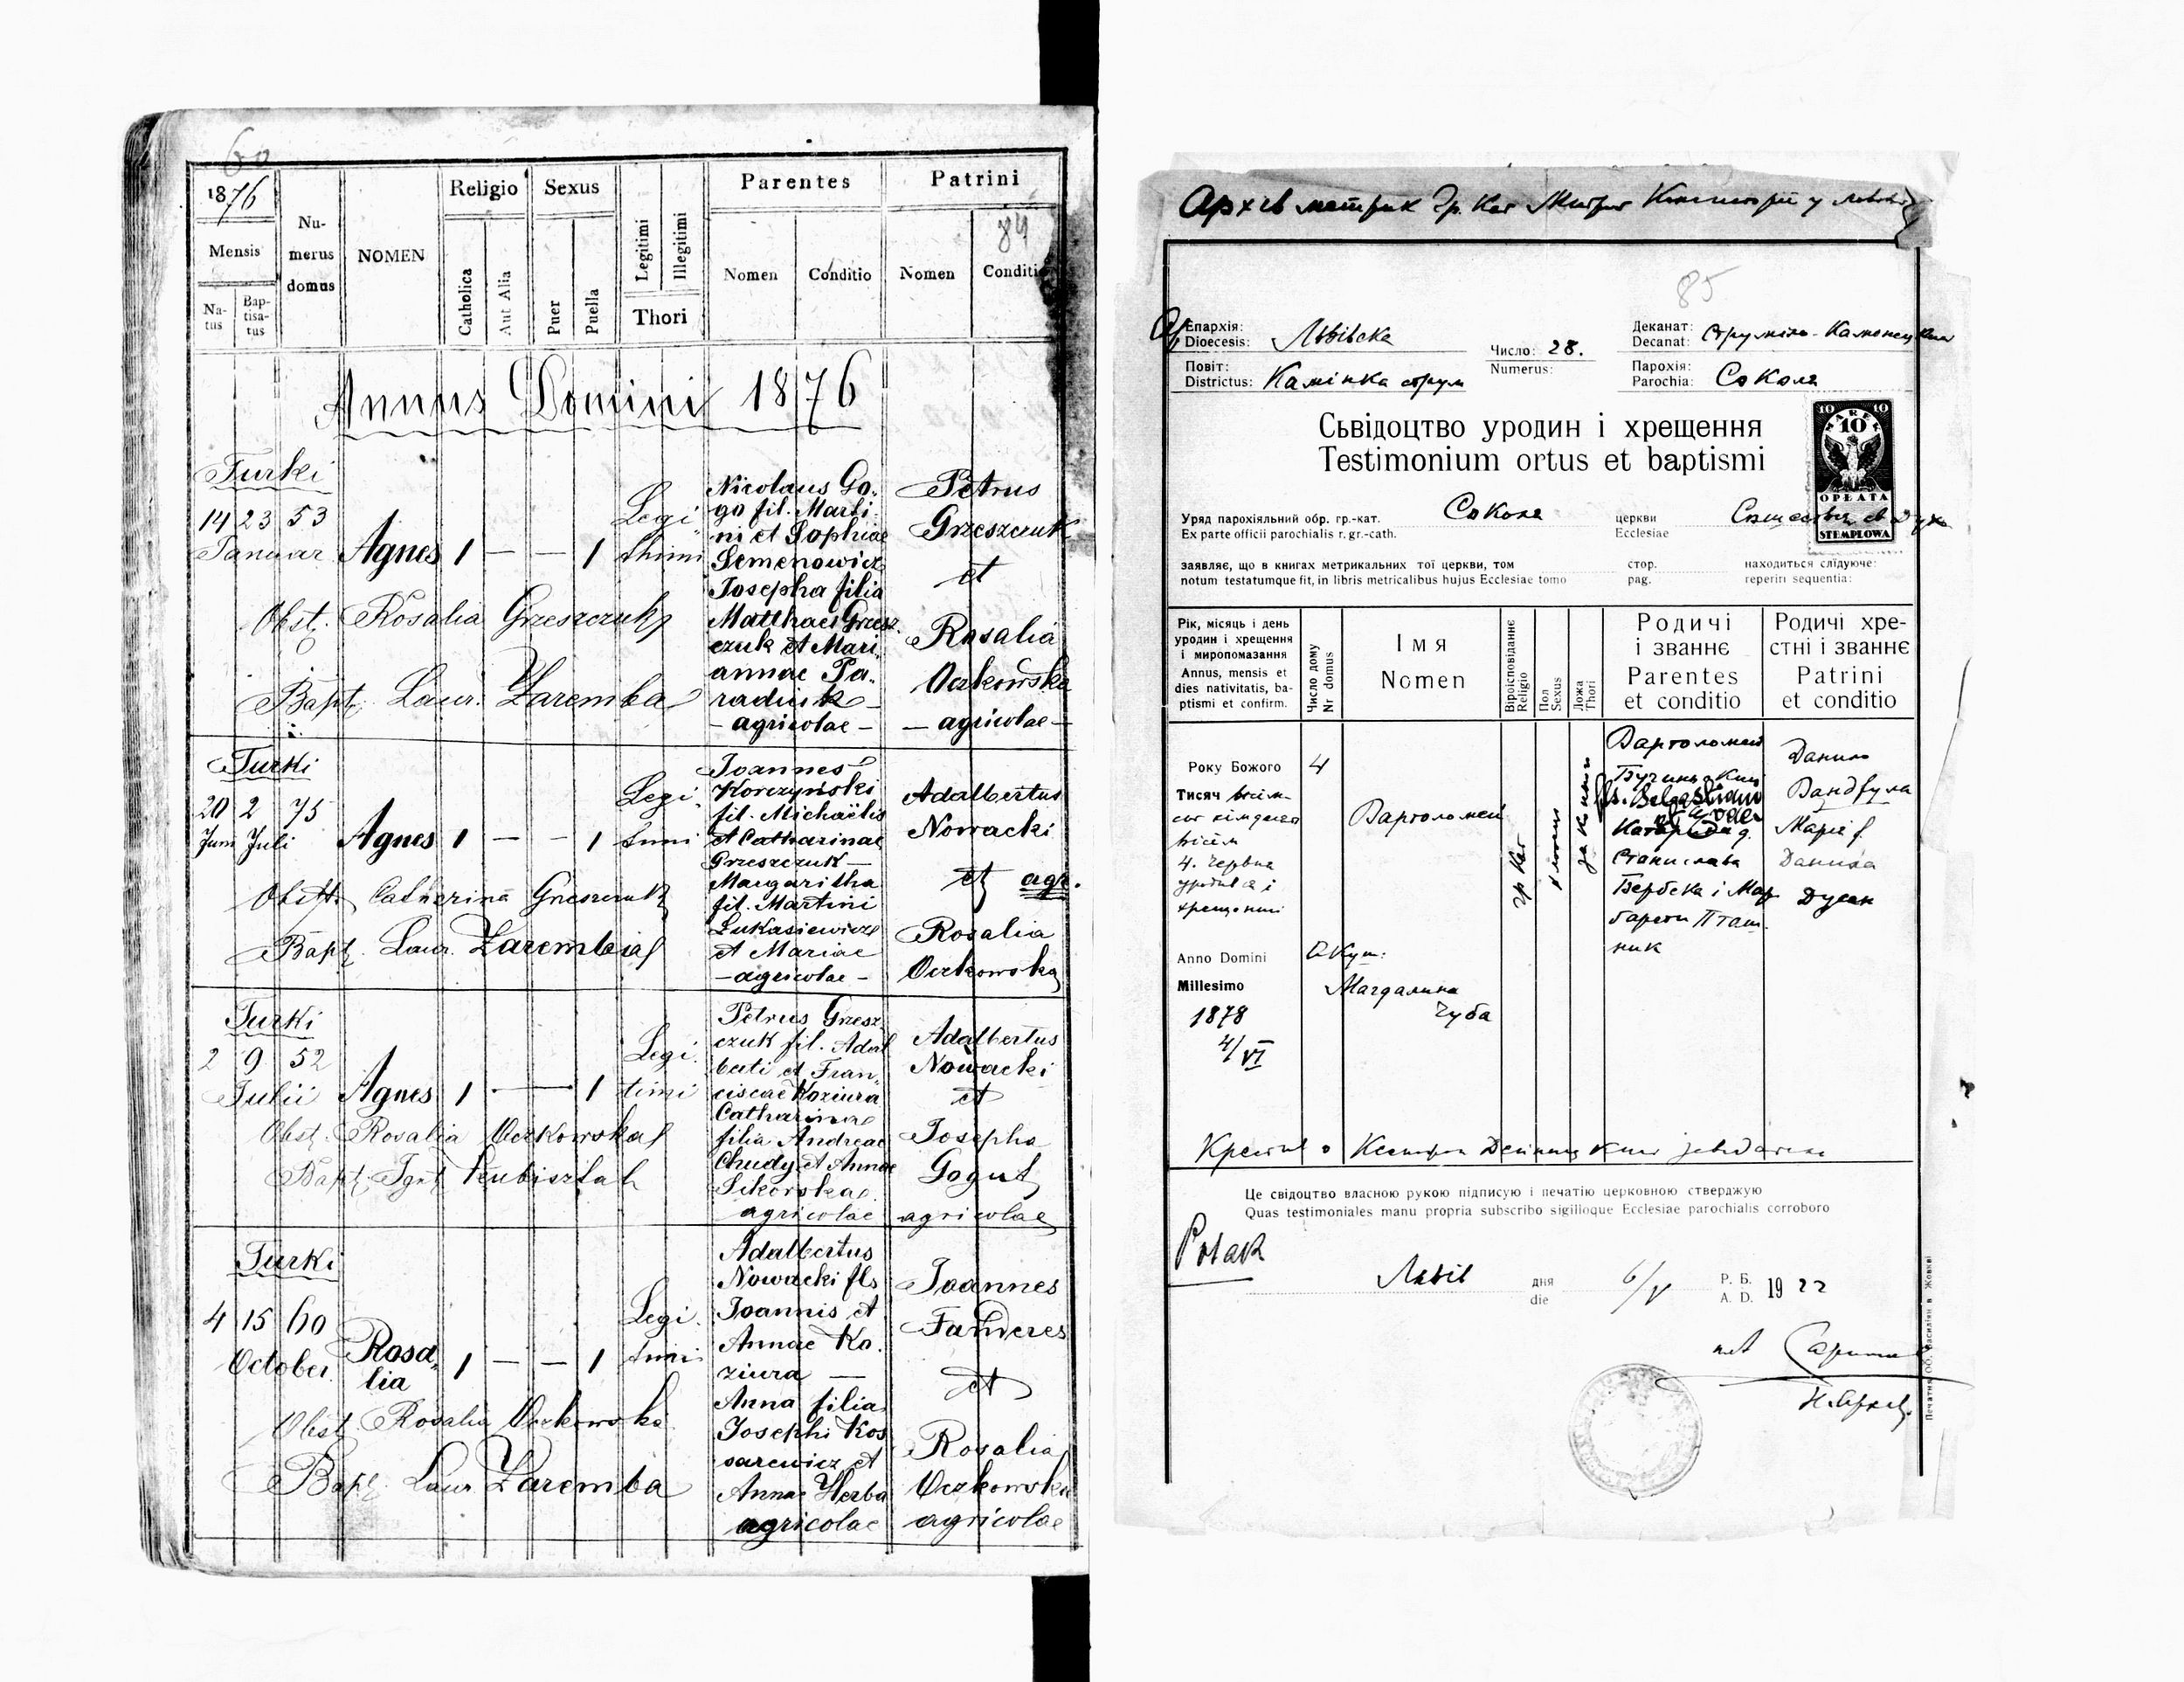 60
1876
Mensis
Na-
tus
Bap-
tisa-
tus
Nu-
merus
domus
NOMEN
Religio
Catholica
Aut Alia
Sexus
Puer
Puella
Legitimi
Illegitimi
Thori
Parentes
Nomen
Conditio
Patrini
84
Nomen
Conditio
Annus Domini 1876
Turki
14 23 53
Januar Agnes 1 — — 1
Legi
thimi
Nicolaus Go-
go fil. Marti
ni et Sophiae
Semenowicz
Josepha filia
Matthaei Gresz
czuk et Mari
annae Pa-
radiuk
- agricolae -
Petrus
Grzeszczuk
et
Rosalia
Oczkowska
- agricolae -
Obst. Rosalia Grzeszczuk
Bapt. Laur. Zaremba
Turki
20 2 75
Juni Juli Agnes 1 — — 1
Legi
timi
Joannes
Korczyński
fil. Michaëlis
et Catharinae
Grzeszczuk —
Margaritha
fil. Martini
Łukasiewicz
et Mariae
- agricolae -
Adalbertus
Nowacki
et agr.
Rosalia
Oczkowska
Obst. Catherina Greszczuk
Bapt. Laur. Zaremba
Turki
2 9 52
Julii Agnes 1 — 1
Legi
timi
Petrus Gresz
czuk fil. Adal
berti et Fran-
ciscae Koziura
Catharinae
filia Andreae
Chudy et Annae
Sikorska
agricolae
Adalbertus
Nowacki
et
Josepha
Gogut
agricolae
Obst. Rosalia Oczkowska
Bapt. Ign.
Turki
4 15 60
October Rosa-
lia 1 — — 1
Legi
timi
Adalbertus
Nowacki fls
Joannis et
Annae Ko-
ziura —
Anna filia
Josephi Kos
sarewicz et
Annae Herba
agricolae
Joannes
et
Rosalia
Oczkowska
agricolae
Obst. Rosalia Oczkowska
Bapt. Laur Zaremba
Архів матрик Гр. Кат Митроп Консисторії у Львові
85
Епархія:
Dioecesis: Львівска
Число: 28.
Numerus:
Деканат:
Decanat: Струміло-Камонецкий
Повіт:
Districtus: Камінка струм
Парохія:
Parochia: Соколя
Сьвідоцтво уродин і хрещення
Testimonium ortus et baptismi
10 10
MAREK
10
OPŁATA
STEMPLOWA
Уряд парохіяльний обр. гр.-кат. Соколя церкви Сошествія св Духа
Ex parte officii parochialis r. gr.-cath. Ecclesiae
заявляє, що в книгах метрикальних тої церкви, том стор. находиться слїдуюче:
notum testatumque fit, in libris metricalibus hujus Ecclesiae tomo pag. reperiri sequentia:
Рік, місяць і день
уродин і хрещення
і миропомазання
Annus, mensis et
dies nativitatis, ba-
ptismi et confirm.
Число дому
Nr domus
Імя
Nomen
Віроісповіданнє
Religio
Пол
Sexus
Ложа
Thori
Родичі
і званнє
Parentes
et conditio
Родичі хре-
стні і званнє
Patrini
et conditio
Року Божого
Тисяч вісім-
сот сімдесят
вісім
4. Червня
уродився і
хрещений
Anno Domini
Millesimo
1878
4/VI
4
Вартоломей
Акуш:
Магдалина
Чуба
гр Кат
Вартоломей
Катерина д.
Станислава
Бербека і Мар
гарети Пташ
ник
Данило
Вандзула
Марія ж.
Данила
Дусан
Це свідоцтво власною рукою підписую і печатію церковною стверджую
Quas testimoniales manu propria subscribo sigilloque Ecclesiae parochialis corroboro
Polak
Львів дня
die 6/V Р. Б.
A. D. 1922
Печатня ОО. Василіян в Жовкві